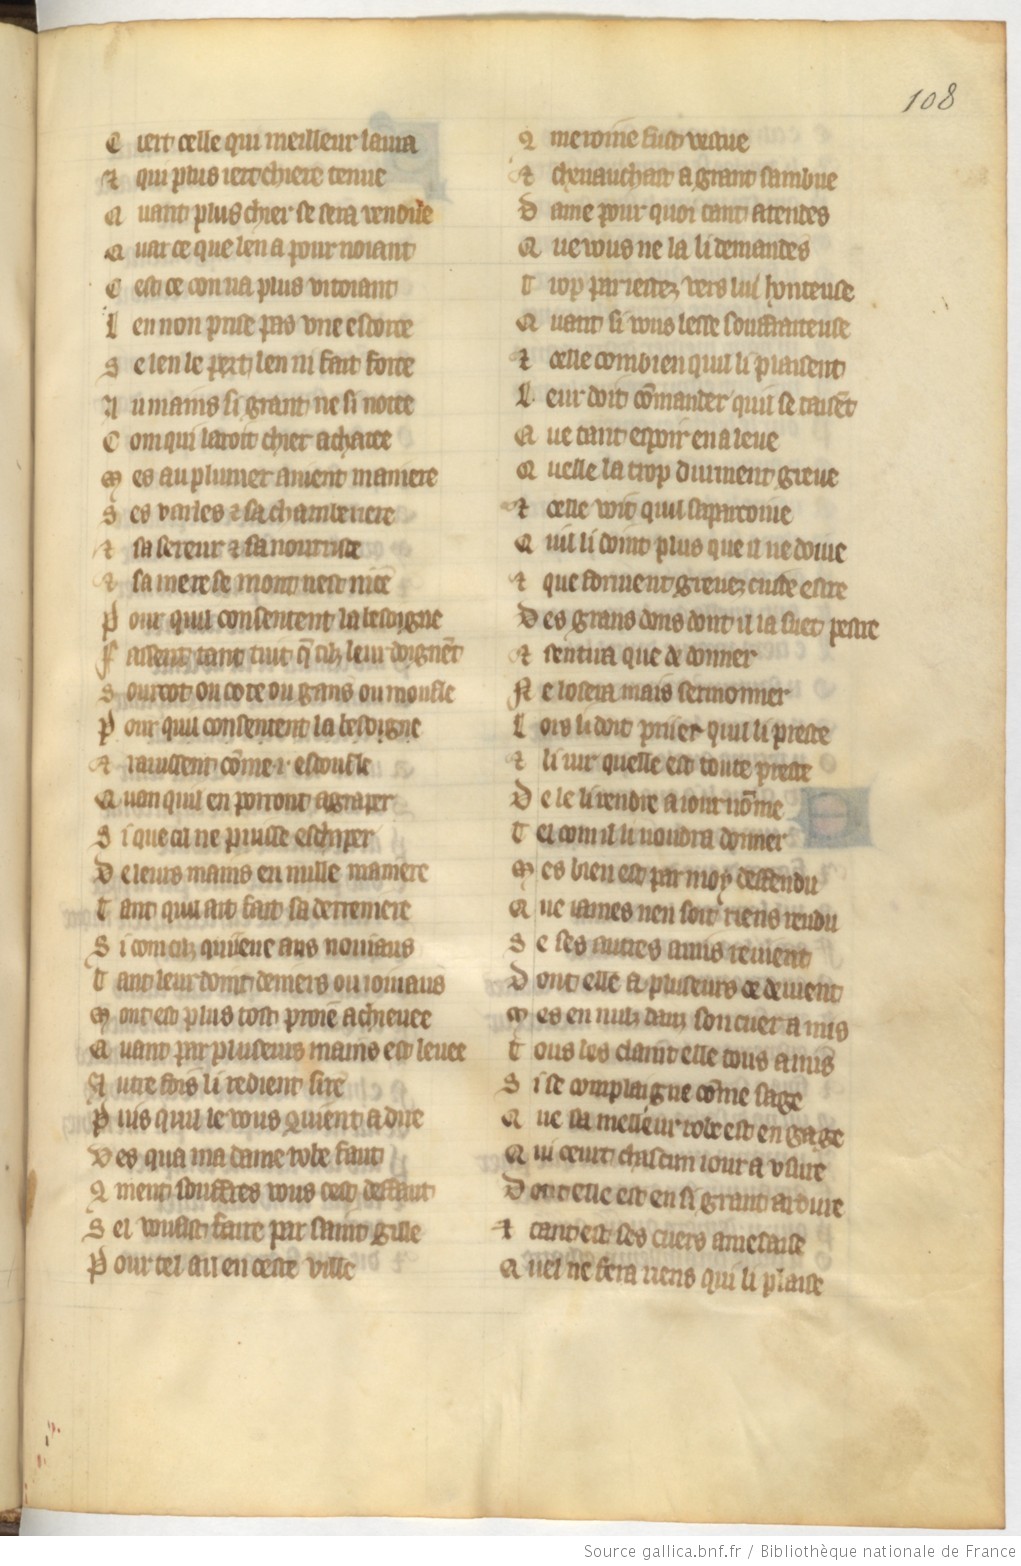 108
C iert celle qui meilleur laura
⁊ qui plus iert chiere tenue
Q uant plus chier se sera vendue
Q uar ce que len a pour noiant
C est ce con va plus vitoiant
L en non prise pas vne escorce
S e len le pert len ni fait force
A u mains si grant ne si notee
C om qui lauroit chier achatee
M es au plumer auient maniere
S es varles ⁊ sa chamberiere
⁊ sa sereur ⁊ sa nourrice
⁊ sa mere se mont nest nice
P our quil consentent la besoigne
F acent tant tuit q̄ cilz leur doignēt
S ourcot ou cote ou gans ou moufle
P our quil consentent la besoigne
⁊ rauissent cōme .i. escoufle
Q uan quil en porront agraper
S i que cil ne puisse eschaper
D e leurs mains en nulle maniere
T ant quil ait fait sa derreniere
S i com cilz qui ieue aus noiaus
T ant leur doint deniers ou ioiaus
M ont est plus tost proie achieuee
Q uant par pluseurs mains est leuee
A utre fois li redient sire
P uis quil le vous quient a dire
V es qua ma dame robe faut
Q ment souffres vous cest deffaut
S el vousist faire par saint gille
P our tel a il en ceste ville
Q me roine fust vestue
⁊ cheuauchast a grant sambue
D ame pour quoi tant atendes
Q ue vous ne la li demandes
T rop par iestez vers lui honteuse
Q uant si vous lesse souffraiteuse
⁊ celle combien quil li plaisent
L eur doit cōmander quil se taisēt
Q ue tant espoir en a leue
Q uelle la trop durment greue
⁊ celle voit quil saparcoiue
Q uil li doint plus que il ne doiue
⁊ que forment greuez cuide estre
D es grans dons dont il la suet pestre
⁊ sentira que de donner
N e losera mais sermonner
L ors li doit prier quil li preste
⁊ li iur quelle est toute preste
D e le li rendre a iour nōme
T el com il li voudra donner
M es bien est par moy deffendu
Q ue iames nen soit riens rendu
S e ses autres amis reuient
D ont elle a pluseurs ce deuient
M es en nulz danz son cuer a mis
T ous les claint elle tous amis
S i se complaigne cōme sage
Q ue sa meilleur robe est en gage
Q ui ceurt chascun iour a vsure
D ont elle est en si grant ardure
⁊ tant est ses cuers a mesaise
Q uel ne fera riens qui li plaise
Source gallica.bnf.fr / Bibliothèque nationale de France